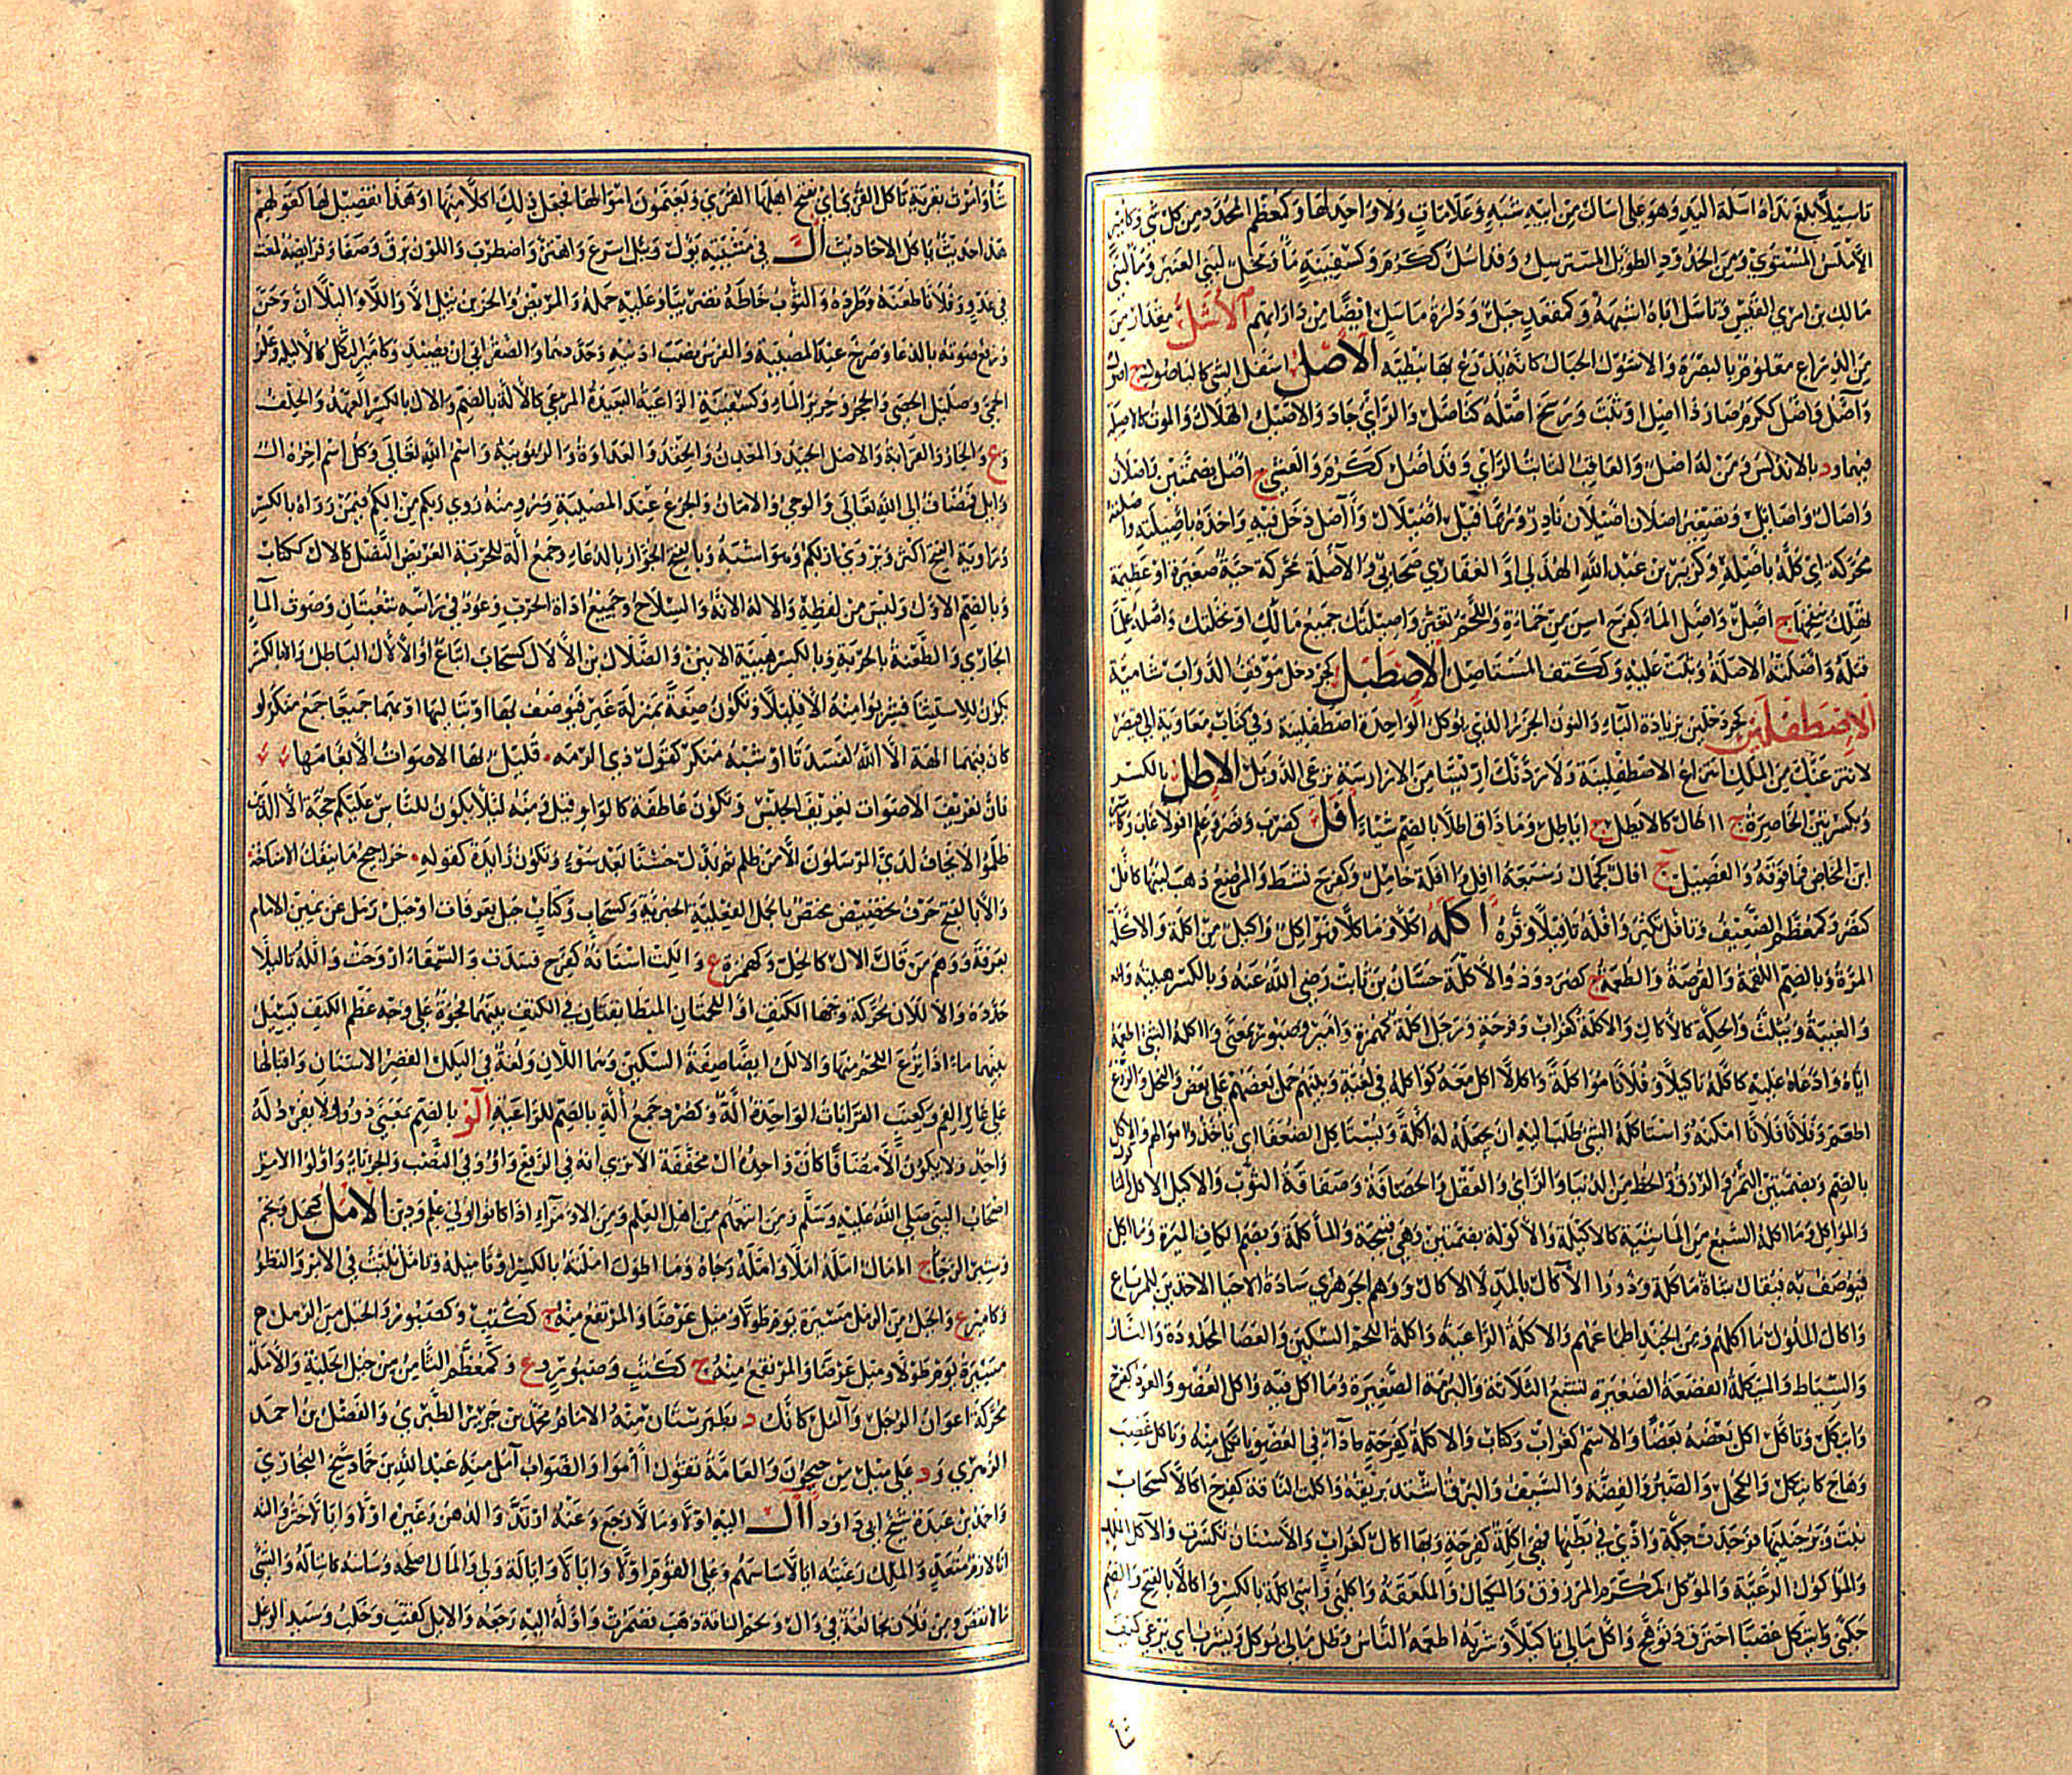 تاسيلا بلغ نداه اسلة اليد وهو على اسال من ابيه شبه وعلامات ولا واحد لها وكمعظم المحدد من كل شي وكامير
الاملس المستوي ومن الخدود الطويل المسترسل وقد اسل ككرم وكسفينة ماء ونخل لبني العنبر وماء لبني
مالك بن امرئ القيس وتاسل اباه اشبهه وكمقعد جبل ودارة ماسل ايضا من داراتهم الاشل مقدار من
من الذراع معلوم بالبصرة والاشول الحبال كانه يذرع بها نبطية الاصل اسفل الشي كالياصول ج اصول
وآصل واصل ككرم صار ذا اصل او ثبت ورسخ اصله كتاصل والراي جاد والاصيل الهلاك والموت كالاصيلة
فيهما ود بالاندلس ومن له اصل والعاقب الثابت الراي وقد اصل ككرم والعشي ج اصل بضمتين واصلان
واصال واصائل وتصغير اصلان اصيلان نادر وربما قيل اصيلال وآصل دخل فيه واخذه باصيلته واصلته
محركة اي كله باصله وكزبير بن عبد الله الهذلي او الغفاري صحابي والاصلة محركة حية صغيرة او عظيمة
تهلك بنفخها ج اصل واصل الماء كفرح اسن من حماة واللحم تغير واصيلتك جميع مالك او نخلتك واصله علما
قتله واصلته الاصلة وثبت عليه وككتف المستاصل الاصطبل كجردحل موقف الدواب شامية
الاصطفلين كجردحلين بزيادة الياء والنون الجزر الذي يوكل الواحدة اصطفلينة وفي كتاب معاوية الى قيصر
لانتزعنك من الملك انتزاع الاصطفلينة ولاردنك اريسا من الارارسة ترعى الدوبل الاطل بالكسر
وبكسرتين الخاصرة ج اطال كالايطل ج اياطل وما ذاق اطلا بالضم شيا افل كضرب ونصر وعلم افولا غاب وكامير
ابن المخاض فما فوقه والفصيل ج افال كجمال وسبعة افل وافلة حامل وكفرح نشط والمرضع ذهب لبنها كافل
كنصر وكمعظم الضعيف وتافل تكبر وافله تافيلا وقره اكله اكلا وماكلا فهو اكل واكيل من اكلة والاكلة
المرة وبالضم اللقمة والقرصة والطعمة ج كصرد وذو الاكلة حسان بن ثابت رضي الله عنه وبالكسر هيئته وانه
والغيبة ويثلث والحكة كالاكال والاكلة كغراب وفرحة ورجل اكلة كهمزة وامير وصبور بمعنى واكله الشي اطعمه
اياه وادعاه عليه كاكله تاكيلا وفلانا مواكلة واكالا اكل معه كواكله في لغية وبينهم حمل بعضهم على بعض والنخل والزرع
اطعم وفلانا فلانا امكنه واستاكله الشي طلب اليه ان يجعله له اكلة ويستاكل الضعفاء اي ياخذ اموالهم والاكل
بالضم وبضمتين الثمر والرزق والحظ من الدنيا والراي والعقل والحصافة وصفاقة الثوب والاكيل الاكل
والمواكل وما اكله السبع من الماشية كالاكيلة والاكولة بضمتين وهي قبيحة والماكلة وبضم الكاف الميرة وما اكل
فيوصف به فيقال شاة ماكلة وذووا الآكال بالمد لا الاكال ووهم الجوهري سادة الاحياء الاخذين للمرباع
واكال الملوك ماكلهم ومن الجند اطماعهم والاكلة الراعية واكلة اللحم السكين والعصا المحددة والنار
والسياط والمئكلة القصعة الصغيرة تشبع الثلاثة والبرمة الصغيرة وما اكل فيه واكل العضو والعود كفرح
وايتكل وتاكل اكل بعضه بعضا والاسم كغراب وكتاب والاكلة كفرحة داء في العضو ياتكل منه وتاكل غضب
وهاج كايتكل والكحل والصبر والفضة والسيف والبرق اشتد بريقه واكلت الناقة كفرح اكالا كسحاب
نبت وبر جنينها فوجدت حكة واذى في بطنها فهي اكلة كفرحة وبها اكال كغراب والاسنان تكسرت والآكل الملك
والماكول الرعية والموكل كمكرم المرزوق والمئكال والملعقة واكلني واستي اكلة بالكسر واكالا بالفتح والضم
حكني وايتكل غضبا احترق وتوهج واكل مالي تاكيلا وشربه اطعمه الناس وظل مالي يوكل ويشرب اي يرعى كيف
شا
شاء وامرت بقرية تاكل القرى اي يفتح اهلها القرى ويغنمون اموالها فجعل ذلك اكلا منها او هذا تفضيل لها كقولهم
هذا حديث ياكل الاحاديث ال في مشيته يؤل ويئل اسرع واهتز واضطرب واللون برق وصفا وفرائصه لمعت
في عدو وفلانا طعنه وطرده والثوب خاطه تضريبا وعليه حمله والمريض والحزين يئل الا واللا واليلا ان وحن
ورفع صوته بالدعا وصرخ عند المصيبة والفرس نصب اذنيه وحددهما والصقر ابى ان يصيد وكامير الثكل كالاليلة وعلز
الحمى وصليل الحصى والحجر وخرير الماء وكسفينة الراعية البعيدة المرعى كالالة بالضم والال بالكسر العهد والحلف
وع والجار والقرابة والاصل الجيد والمعدن والحقد والعداوة والربوبية واسم الله تعالى وكل اسم اخره ال
وايل فمضاف الى الله تعالى والوحي والامان والجزع عند المصيبة ومنه روي ربكم من الكم فيمن رواه بالكسر
ورواية الفتح اكثر ويروى ازلكم وهو اشبه وبالفتح الجوار بالدعاء وجمع الة للحربة العريض النصل كالال ككتاب
وبالضم الاول وليس من لفظه والالة الانة والسلاح وجميع اداة الحرب وعود في راسه شعبتان وصوت الماء
الجاري والطعنة بالحربة وبالكسر هيئة الانين والضلال بن الالال كسحاب اتباع او الالال الباطل والا بالكسر
تكون للاستثنا فشربوا منه الا قليلا وتكون صفة بمنزلة غير فيوصف بها او بتاليها او بهما جميعا جمع منكر لو
كان فيهما الهة الا الله لفسدتا او شبه منكر كقول ذي الرمه قليل بها الاصوات الا بغامها
فان تعريف الاصوات تعريف الجنس وتكون عاطفة كالواو قيل ومنه لئلا يكون للناس عليكم حجة الا الذين
ظلموا لا يخاف لدي المرسلون الا من ظلم ثم بدل حسنا بعد سوء وتكون زايدة كقوله حراجيج ما ينفك الا مناخة
والا بالفتح حرف تحضيض مختص بالجمل الفعلية الخبرية وكسحاب وكتاب جبل بعرفات او حبل رمل عن يمين الامام
بعرفة ووهم من قال الال كالخل وكهمزة ع واللت اسنانه كفرح فسدت والسقاء اروحت والله تاليلا
حدده والاللان محركة وجها الكتف او اللحمتان المتطابقتان في الكتف بينهما فجوة على وجه عظم الكتف يسيل
بينهما ماء اذا نزع اللحم منها والالل ايضا صفحة السكين وهما اللان ولغة في اليلل القصر الاسنان واقبالها
على غار الفم وكعنب القرابات الواحدة الة وكصرد جمع الة بالضم للراعية الو بالضم معنى ذوو لا يفرد له
واحد ولا يكون الا مضافا كان واحده ال مخففة الا ترى انه في الرفع واو وفي النصب والجر ياء واولوا الامر
اصحاب النبي صلى الله عليه وسلم ومن اتبعهم من اهل العلم ومن الامراء اذا كانوا اولي علم ودين الامل كجبل ونجم
وشبر الرجا ج امال امله املا وامله رجاه وما اطول املته بالكسر او تاميله وتامل تلبث في الامر والنظر
وكامير ع والحبل من الرمل مسيرة يوم طولا وميل عرضا والمرتفع منه ج ككتب وكصبور والحبل من الرمل
مسيرة يوم طولا وميل عرضا والمرتفع منه ج ككتب وصبور ع وكمعظم الثامن من خيل الحلبة والاملة
محركة اعوان الرجل وآمل كانك د بطبرستان منه الامام محمد بن جرير الطبري والفضل بن احمد
الزهري ود على ميل من جيحون والعامة تقول اموا والصواب آمل منه عبد الله بن حماد شيخ البخاري
واحمد بن عبدة شيخ ابي داود ال اليه اولا ومالا رجع وعنه ارتد والدهن وغيره اولا وايالا خثر والته
انا لازم متعد والملك رعيته ايالا ساسهم وعلى القوم اولا وايالا وايالة ولي والمال اصلحه وساسه كايتاله والشي
مالا نقص ومن فلان نجا لغة في وال ولحم الناقة ذهب فضمرت واوله اليه رجعه والايل كقنب وخلب وسيد الوعل